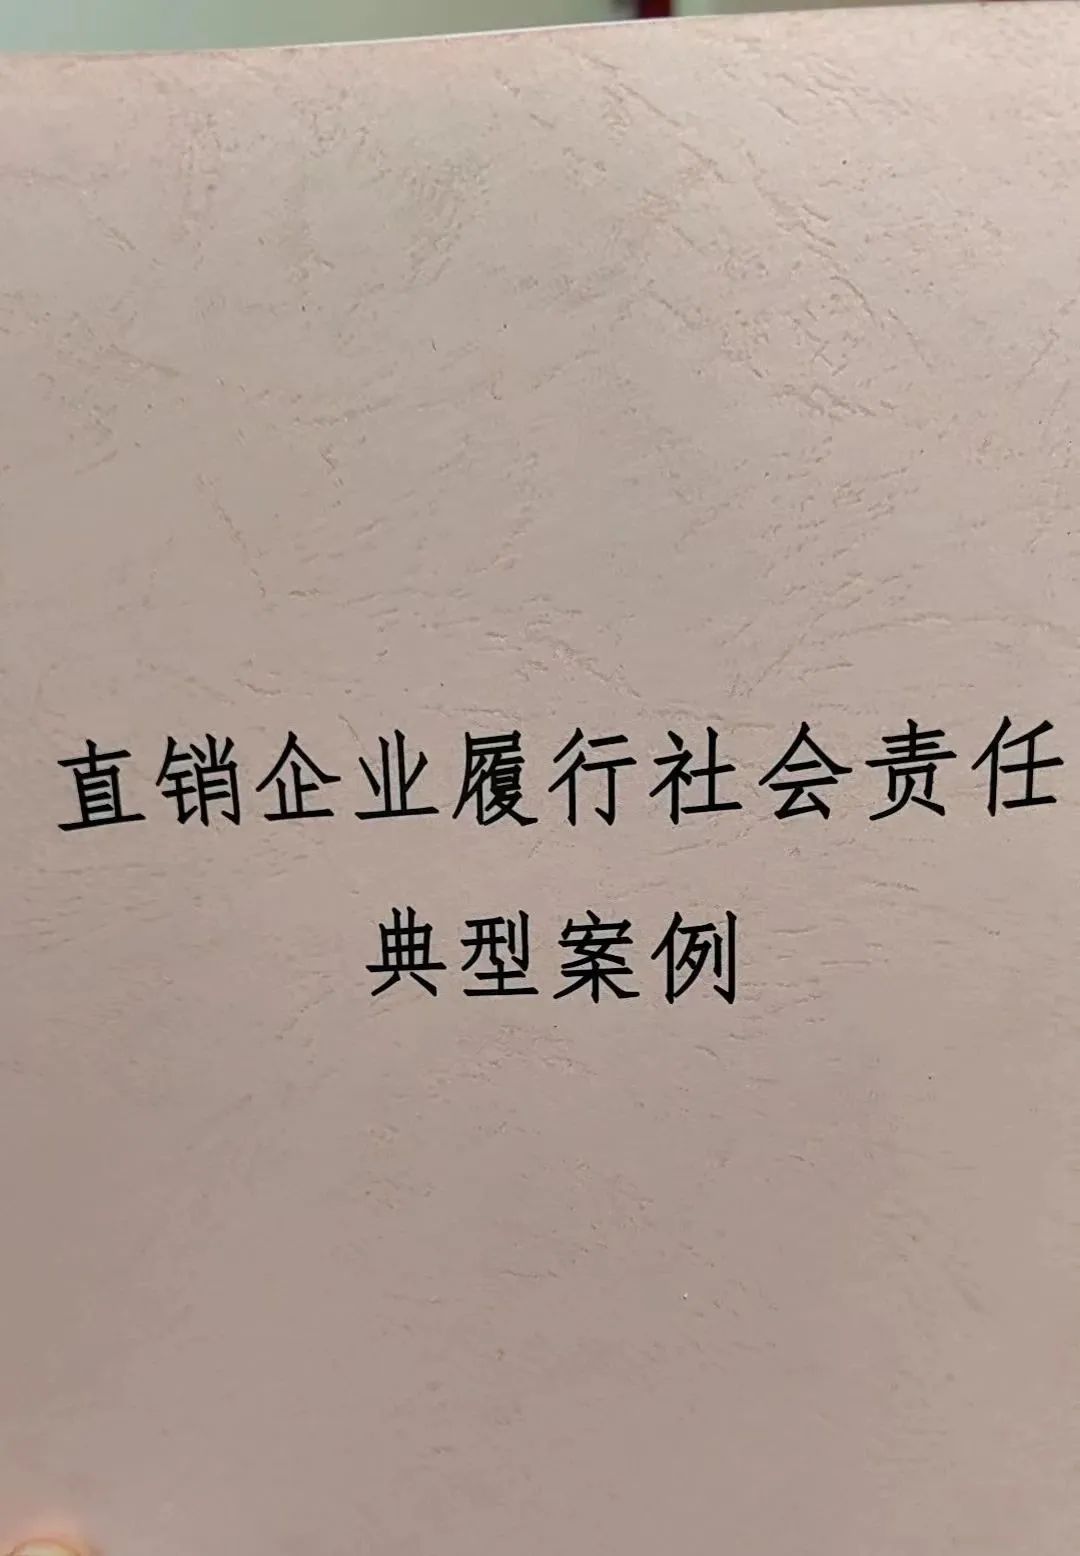 直销企业履行社会责任
典型案例